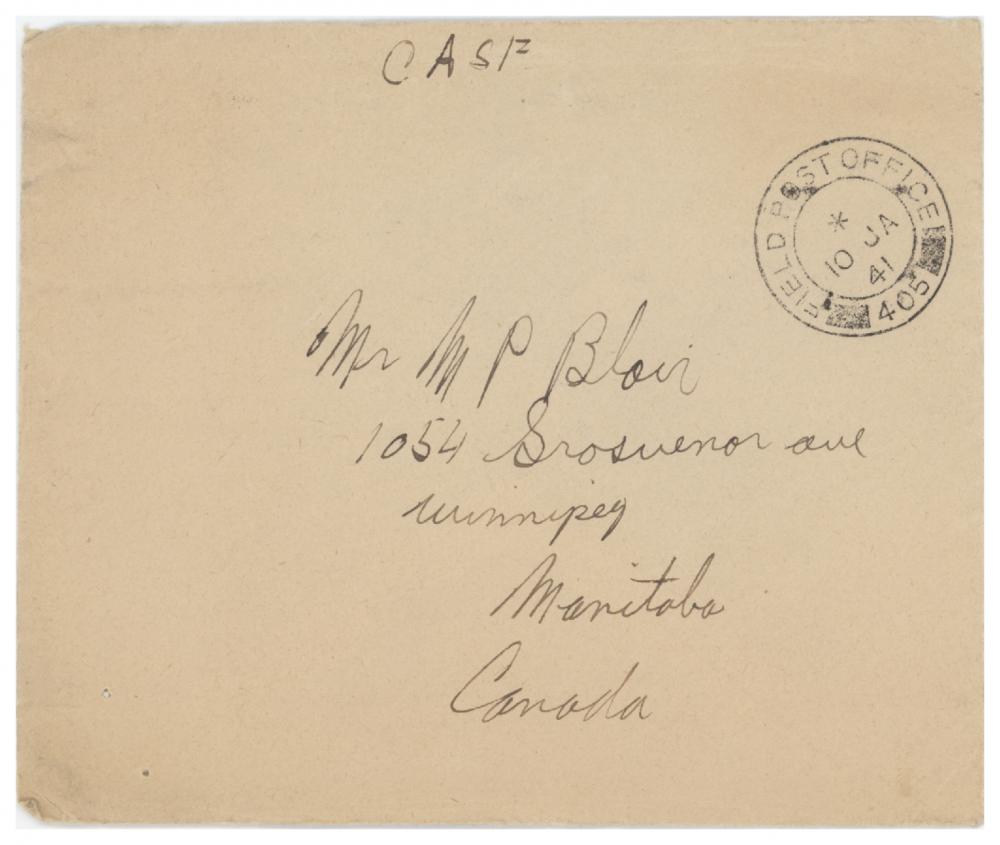 CASF
FIELD POST OFFICE
405
*
10 JA
41
Mr M P Blair
1054 Grosvenor ave
Winnipeg
Manitoba
Canada